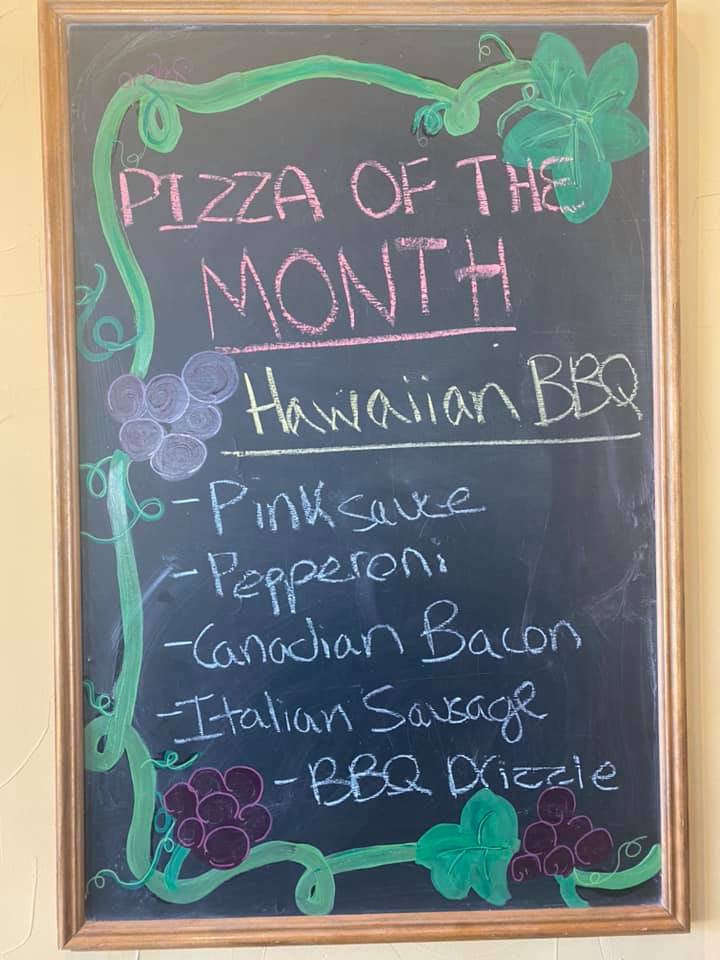 PIZZA OF THE
MONTH
Hawaiian BBQ
- Pink sauce
- Pepperoni
- Canadian Bacon
- Italian Sausage
- BBQ Drizzle